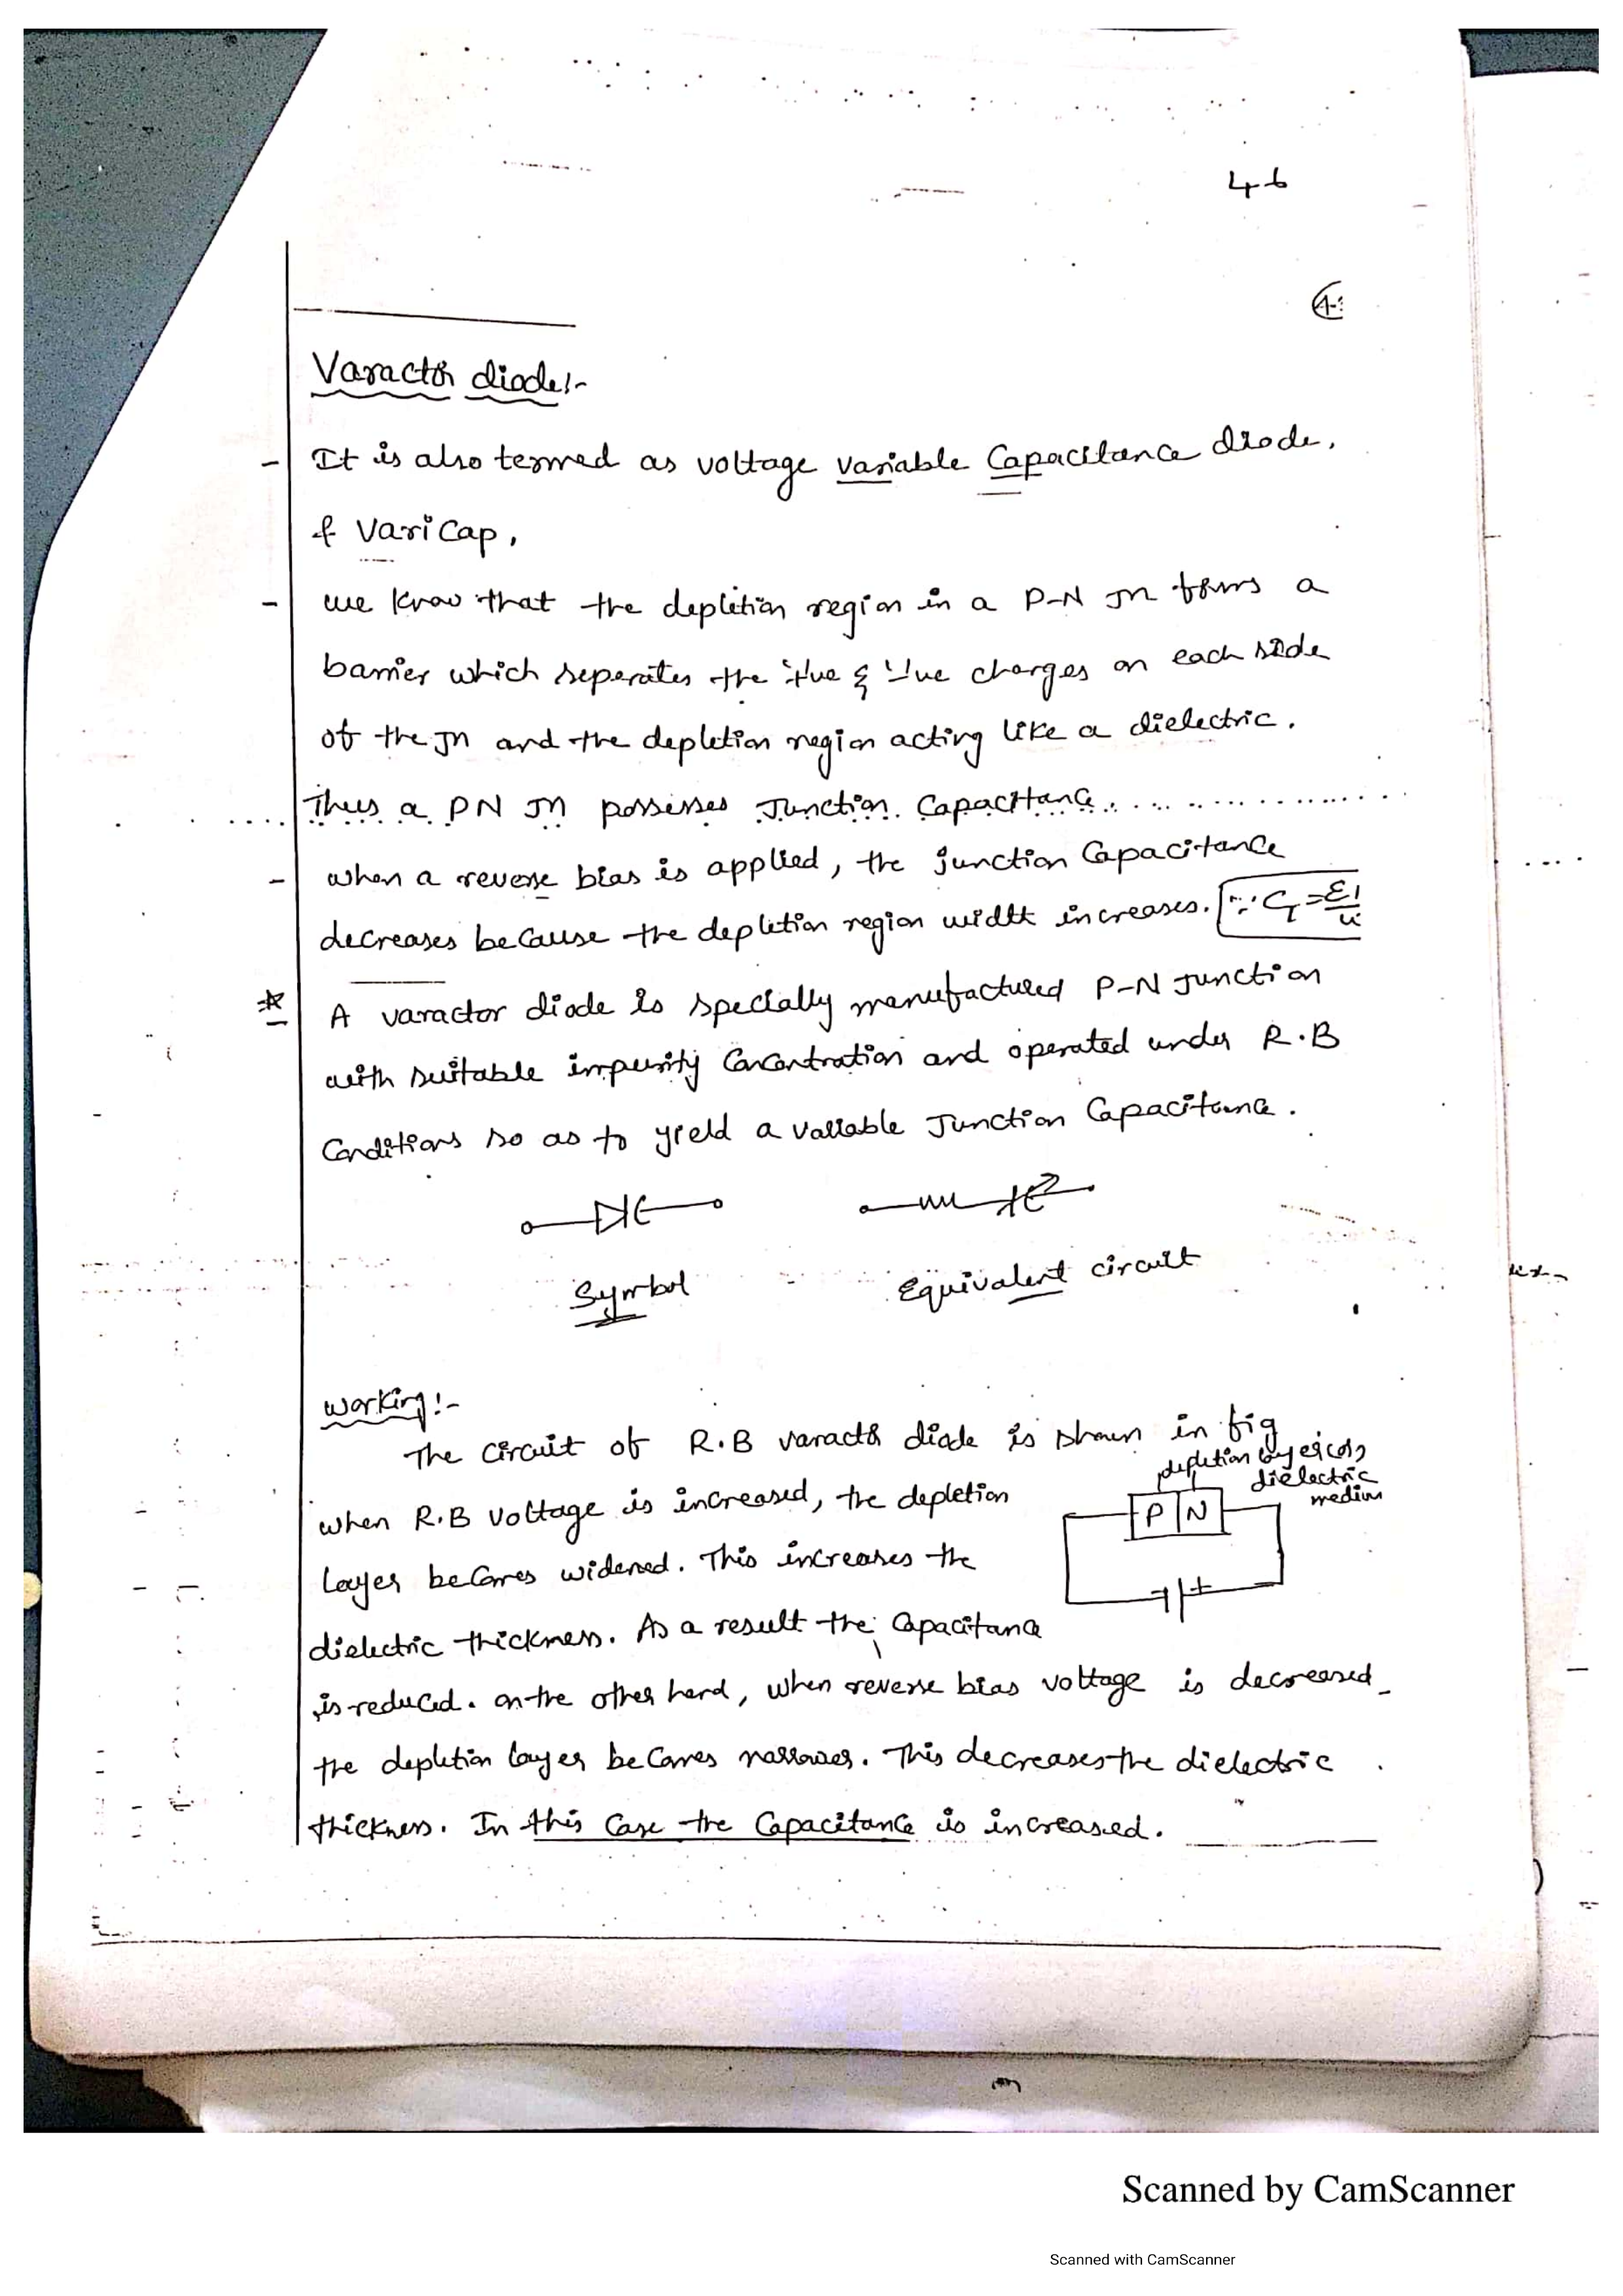 4-6
Varactor diode:-
- It is also termed as voltage variable Capacitance diode.
& Varicap.
- we know that the depletion region in a P-N Jn forms a
barrier which seperates the '+ve & '-'ve charges on each side
of the Jn and the depletion region acting like a dielectric.
Thus a PN Jn possesses Junction Capacitance.
- when a reverse bias is applied, the junction Capacitance
decreases because the depletion region width increases. ∵ C_T =
* A varactor diode is specially manufactured P-N Junction
with suitable impurity Concentration and operated under R.B
Conditions so as to yield a variable Junction Capacitance.
Symbol Equivalent circuit
Working:-
The circuit of R.B varactor diode is shown in fig
when R.B voltage is increased, the depletion
layer becomes widened. This increases the
dielectric thickness. As a result the Capacitance
is reduced. on the other hand, when reverse bias voltage is decreased
the depletion layer becomes narrower. This decreases the dielectric
thickness. In this Case the Capacitance is increased.
depletion layer (or)
dielectric
medium
P N
- +
Scanned by CamScanner
Scanned with CamScanner